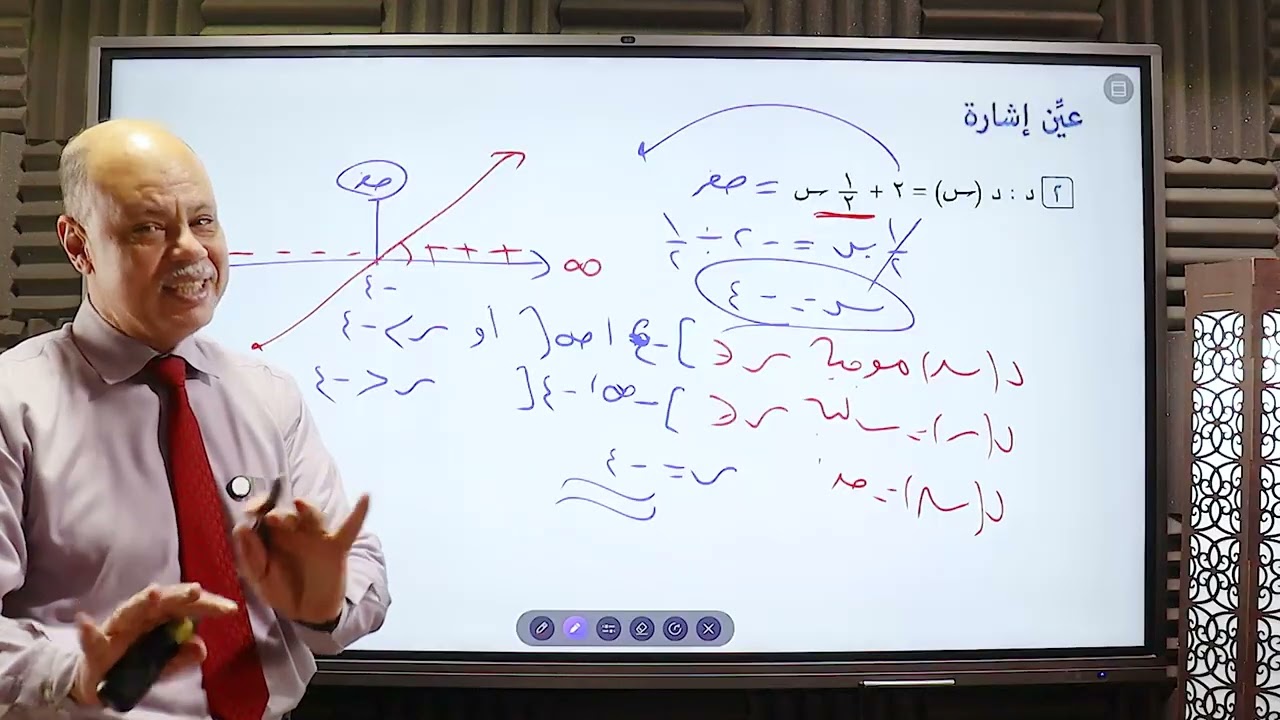 عيِّن إشارة
٢ د : د (س) = ٢ + ١/٢ س = صفر
١/٢ س = - ٢ ÷ ١/٢
س = - ٤
صفر
- - - - + + + ∞
- ٤
د (س) موجبة س ∈ ]-٤ ، ∞[ أو س > -٤
د (س) = سالبة س ∈ ]-∞ ، -٤[ س < -٤
د (س) = صفر س = - ٤